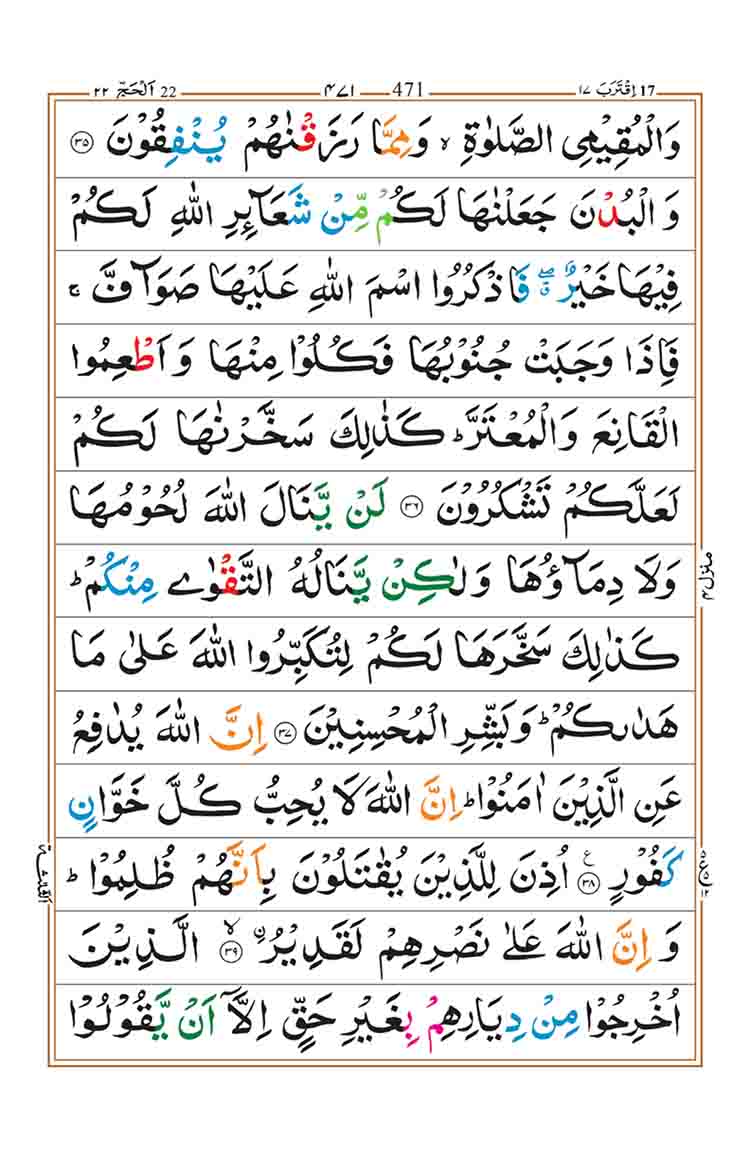 ۲۲ اَلْحَجّ 22 ۴۷۱ 471 ۱۷ اِقْتَرَبَ 17
وَالْمُقِيْمِى الصَّلٰوةِ ۙ وَمِمَّا رَزَقْنٰهُمْ يُنْفِقُوْنَ ۝۳۵
وَ الْبُدْنَ جَعَلْنٰهَا لَكُمْ مِّنْ شَعَآئِرِ اللّٰهِ لَكُمْ
فِيْهَا خَيْرٌ ۖ ۗ فَاذْكُرُوا اسْمَ اللّٰهِ عَلَيْهَا صَوَآفَّ ۚ
فَاِذَا وَجَبَتْ جُنُوْبُهَا فَكُلُوْا مِنْهَا وَ اَطْعِمُوا
الْقَانِعَ وَالْمُعْتَرَّ ؕ كَذٰلِكَ سَخَّرْنٰهَا لَكُمْ
لَعَلَّكُمْ تَشْكُرُوْنَ ۝۳۶ لَنْ يَّنَالَ اللّٰهَ لُحُوْمُهَا
وَلَا دِمَآؤُهَا وَلٰكِنْ يَّنَالُهُ التَّقْوٰى مِنْكُمْ ؕ
كَذٰلِكَ سَخَّرَهَا لَكُمْ لِتُكَبِّرُوا اللّٰهَ عَلٰى مَا
هَدٰىكُمْ ؕ وَبَشِّرِ الْمُحْسِنِيْنَ ۝۳۷ اِنَّ اللّٰهَ يُدٰفِعُ
عَنِ الَّذِيْنَ اٰمَنُوْا ؕ اِنَّ اللّٰهَ لَا يُحِبُّ كُلَّ خَوَّانٍ
كَفُوْرٍ ۝۳۸ ع اُذِنَ لِلَّذِيْنَ يُقٰتَلُوْنَ بِاَنَّهُمْ ظُلِمُوْا ؕ
وَ اِنَّ اللّٰهَ عَلٰى نَصْرِهِمْ لَقَدِيْرُ ۙ۝۳۹ الَّذِيْنَ
اُخْرِجُوْا مِنْ دِيَارِهِمْ بِغَيْرِ حَقٍّ اِلَّاۤ اَنْ يَّقُوْلُوْا
منزل ۴